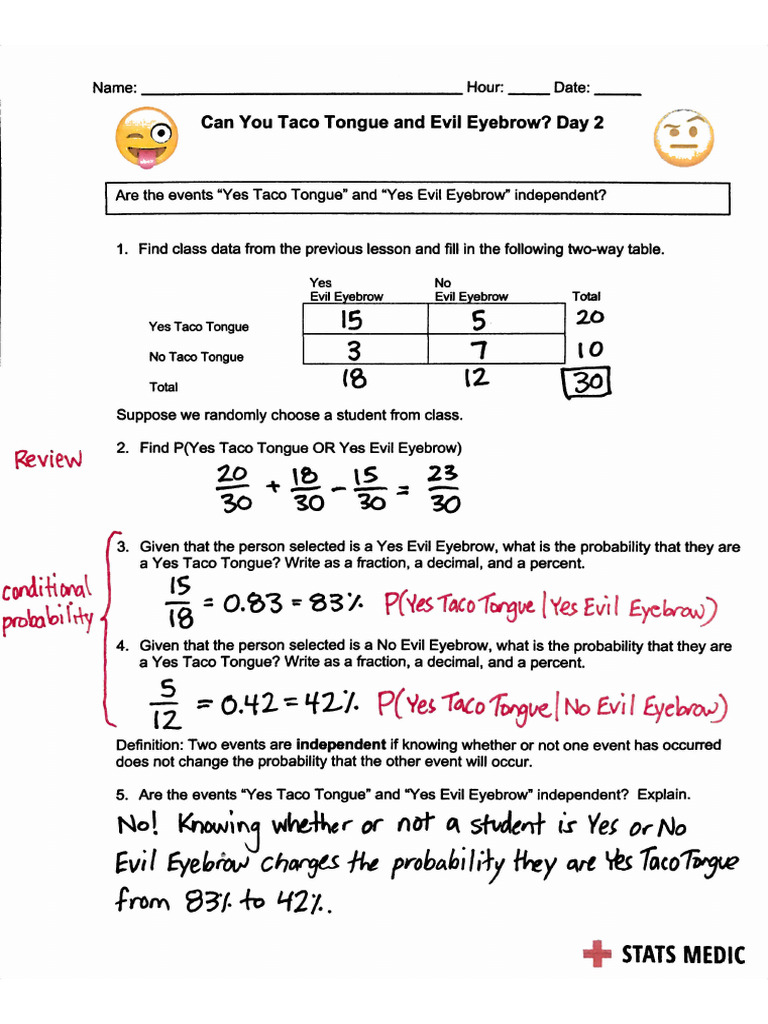 Name: ____________________ Hour: _____ Date: ______
Can You Taco Tongue and Evil Eyebrow? Day 2
Are the events “Yes Taco Tongue” and “Yes Evil Eyebrow” independent?
1. Find class data from the previous lesson and fill in the following two-way table.
Yes No
Evil Eyebrow Evil Eyebrow Total
Yes Taco Tongue 15 5 20
No Taco Tongue 3 7 10
Total 18 12 30
Suppose we randomly choose a student from class.
Review
2. Find P(Yes Taco Tongue OR Yes Evil Eyebrow)
20/30 + 18/30 - 15/30 = 23/30
conditional probability
3. Given that the person selected is a Yes Evil Eyebrow, what is the probability that they are
a Yes Taco Tongue? Write as a fraction, a decimal, and a percent.
15/18 = 0.83 = 83% P(Yes Taco Tongue | Yes Evil Eyebrow)
4. Given that the person selected is a No Evil Eyebrow, what is the probability that they are
a Yes Taco Tongue? Write as a fraction, a decimal, and a percent.
5/12 = 0.42 = 42% P(Yes Taco Tongue | No Evil Eyebrow)
Definition: Two events are independent if knowing whether or not one event has occurred
does not change the probability that the other event will occur.
5. Are the events “Yes Taco Tongue” and “Yes Evil Eyebrow” independent? Explain.
No! Knowing whether or not a student is Yes or No
Evil Eyebrow changes the probability they are Yes Taco Tongue
from 83% to 42%.
STATS MEDIC